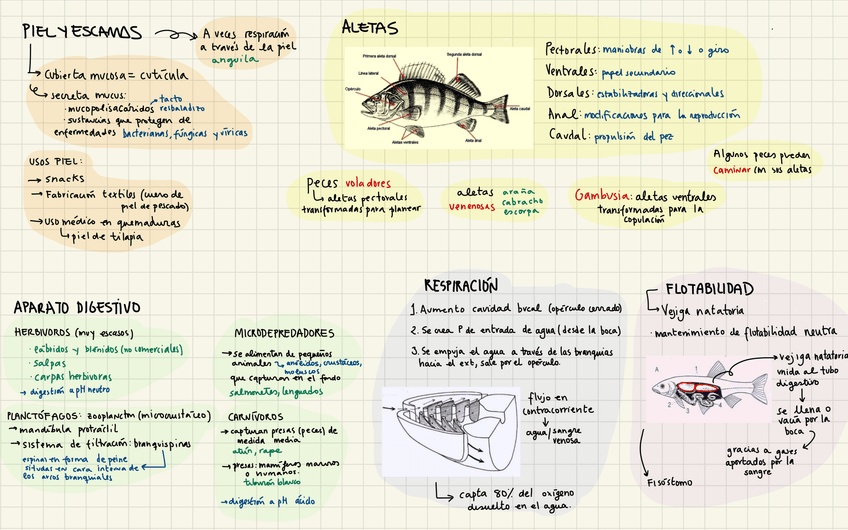 PIEL Y ESCAMAS
A veces respiración
a través de la piel
anguila
cubierta mucosa = cutícula
secreta mucus:
· mucopolisacáridos tacto resbaladizo
· sustancias que protegen de
enfermedades bacterianas, fúngicas y víricas
USOS PIEL:
→ snacks
→ Fabricación textiles (cuero de
piel de pescado)
→ uso médico en quemaduras
piel de tilapia
ALETAS
Primera aleta dorsal
Segunda aleta dorsal
Línea lateral
Opérculo
Aleta caudal
Aleta pectoral
Aletas ventrales
Aleta anal
Pectorales: maniobras de ↑ o ↓ o giro
Ventrales: papel secundario
Dorsales: estabilizadoras y direccionales
Anal: modificaciones para la reproducción
Caudal: propulsión del pez
Algunos peces pueden
caminar con sus aletas
Peces voladores
aletas pectorales
transformadas para planear
aletas venenosas
araña
cabracho
escorpa
Gambusia: aletas ventrales
transformadas para la
copulación
APARATO DIGESTIVO
HERBÍVOROS (muy escasos)
· y blénidos (no comerciales)
· salpas
· carpas herbívoras
→ digestión a pH neutro
PLANCTÓFAGOS: zooplancton (microcrustáceo)
→ mandíbula protráctil
→ sistema de filtración: branquispinas
espinas en forma de peine
situadas en cara interna de
los arcos branquiales
MICRODEPREDADORES
→ se alimentan de pequeños
animales → anélidos, crustáceos,
moluscos
que capturan en el fondo
salmonetes, lenguados
CARNÍVOROS
→ capturan presas (peces) de
medida media
atún, rape
→ presas: mamíferos marinos
o humanos.
tiburón blanco
→ digestión a pH ácido
RESPIRACIÓN
1. Aumento cavidad bucal (opérculo cerrado)
2. Se crea P de entrada de agua (desde la boca)
3. Se empuja el agua a través de las branquias
hacia el ext, sale por el opérculo.
flujo en
contracorriente
agua/sangre
venosa
capta 80% del oxígeno
disuelto en el agua.
FLOTABILIDAD
Vejiga natatoria
· mantenimiento de flotabilidad neutra
A
1
2
3
4
vejiga natatoria
unida al tubo
digestivo
se llena o
vacía por la
boca
gracias a gases
aportados por la
sangre
Fisóstomo